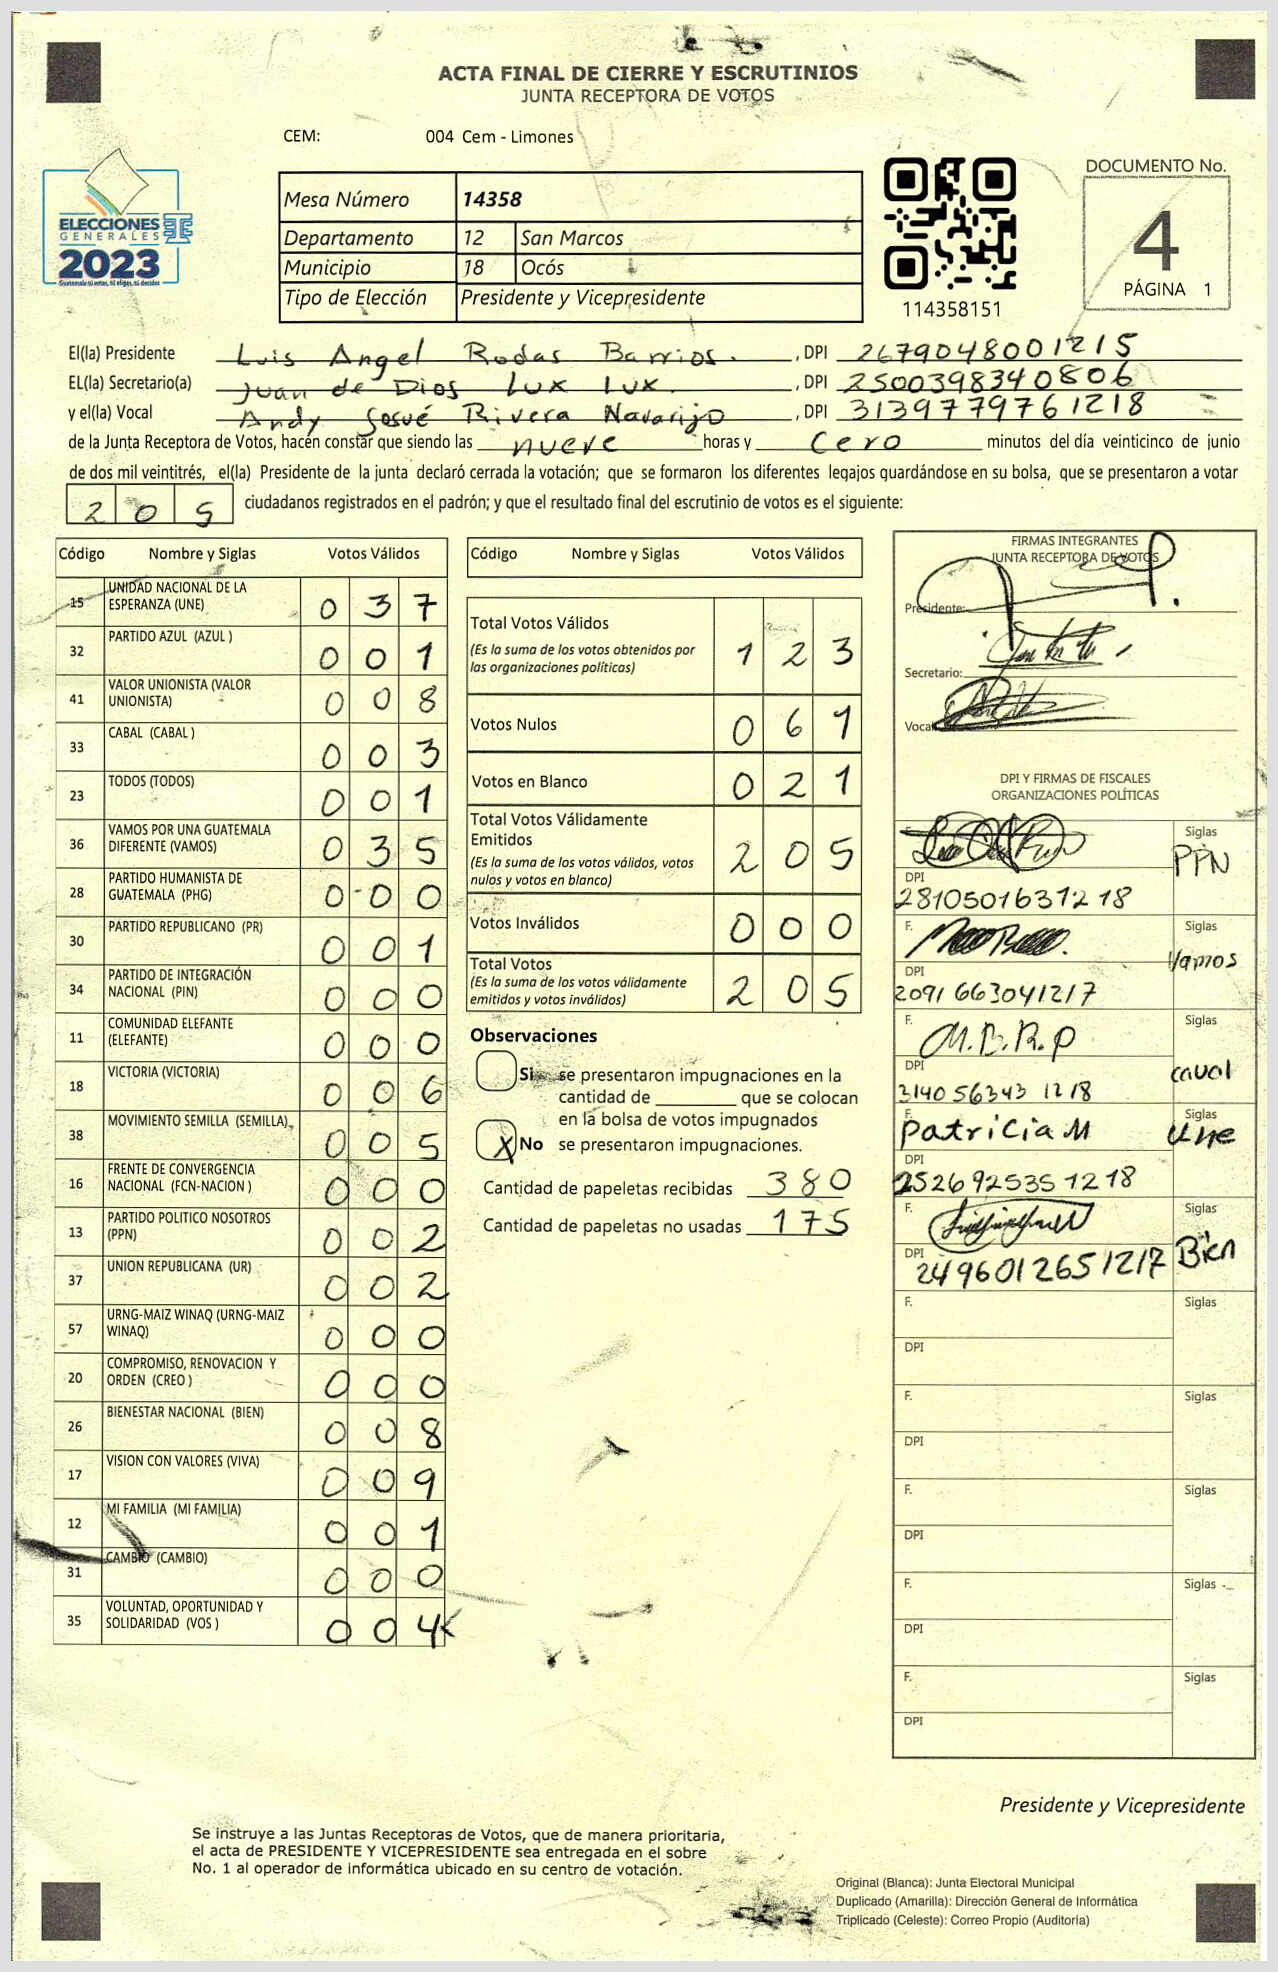 ACTA FINAL DE CIERRE Y ESCRUTINIOS
JUNTA RECEPTORA DE VOTOS
CEM: 004 Cem - Limones
ELECCIONES
GENERALES
2023
Guatemala tú votas, tú eliges, tú decides
Mesa Número 14358
Departamento 12 San Marcos
Municipio 18 Ocós
Tipo de Elección Presidente y Vicepresidente
114358151
DOCUMENTO No.
4
PÁGINA 1
El(la) Presidente Luis Angel Rodas Barrios. , DPI 2679048001215
EL(la) Secretario(a) Juan de Dios Lux Lux. , DPI 2500398340806
y el(la) Vocal Andy Josué Rivera Navarijo , DPI 3139779761218
de la Junta Receptora de Votos, hacen constar que siendo las nueve horas y cero minutos del día veinticinco de junio
de dos mil veintitrés, el(la) Presidente de la junta declaró cerrada la votación; que se formaron los diferentes legajos guardándose en su bolsa, que se presentaron a votar
205 ciudadanos registrados en el padrón; y que el resultado final del escrutinio de votos es el siguiente:
Código Nombre y Siglas Votos Válidos
15 UNIDAD NACIONAL DE LA ESPERANZA (UNE) 037
32 PARTIDO AZUL (AZUL ) 001
41 VALOR UNIONISTA (VALOR UNIONISTA) 008
33 CABAL (CABAL ) 003
23 TODOS (TODOS) 001
36 VAMOS POR UNA GUATEMALA DIFERENTE (VAMOS) 035
28 PARTIDO HUMANISTA DE GUATEMALA (PHG) 000
30 PARTIDO REPUBLICANO (PR) 001
34 PARTIDO DE INTEGRACIÓN NACIONAL (PIN) 000
11 COMUNIDAD ELEFANTE (ELEFANTE) 000
18 VICTORIA (VICTORIA) 006
38 MOVIMIENTO SEMILLA (SEMILLA) 005
16 FRENTE DE CONVERGENCIA NACIONAL (FCN-NACION ) 000
13 PARTIDO POLITICO NOSOTROS (PPN) 002
37 UNION REPUBLICANA (UR) 002
57 URNG-MAIZ WINAQ (URNG-MAIZ WINAQ) 000
20 COMPROMISO, RENOVACION Y ORDEN (CREO ) 000
26 BIENESTAR NACIONAL (BIEN) 008
17 VISION CON VALORES (VIVA) 009
12 MI FAMILIA (MI FAMILIA) 001
31 CAMBIO (CAMBIO) 000
35 VOLUNTAD, OPORTUNIDAD Y SOLIDARIDAD (VOS ) 004
Código Nombre y Siglas Votos Válidos
Total Votos Válidos 123
(Es la suma de los votos obtenidos por
las organizaciones políticas)
Votos Nulos 061
Votos en Blanco 021
Total Votos Válidamente
Emitidos 205
(Es la suma de los votos válidos, votos
nulos y votos en blanco)
Votos Inválidos 000
Total Votos 205
(Es la suma de los votos válidamente
emitidos y votos inválidos)
Observaciones
Si se presentaron impugnaciones en la
cantidad de ________ que se colocan
en la bolsa de votos impugnados
X No se presentaron impugnaciones.
Cantidad de papeletas recibidas 380
Cantidad de papeletas no usadas 175
FIRMAS INTEGRANTES
JUNTA RECEPTORA DE VOTOS
Presidente:
Secretario:
Vocal
DPI Y FIRMAS DE FISCALES
ORGANIZACIONES POLÍTICAS
F. Siglas PPN
DPI 2810501631218
F. Siglas Vamos
DPI 2091663041217
F. M.B.R.P Siglas caval
DPI 3140 56343 1218
F. Patricia M Siglas Une
DPI 2526925351218
F. Siglas Bien
DPI 2496012651217
F. Siglas
DPI
F. Siglas
DPI
F. Siglas
DPI
F. Siglas
DPI
F. Siglas
DPI
Presidente y Vicepresidente
Se instruye a las Juntas Receptoras de Votos, que de manera prioritaria,
el acta de PRESIDENTE Y VICEPRESIDENTE sea entregada en el sobre
No. 1 al operador de informática ubicado en su centro de votación.
Original (Blanca): Junta Electoral Municipal
Duplicado (Amarilla): Dirección General de Informática
Triplicado (Celeste): Correo Propio (Auditoría)